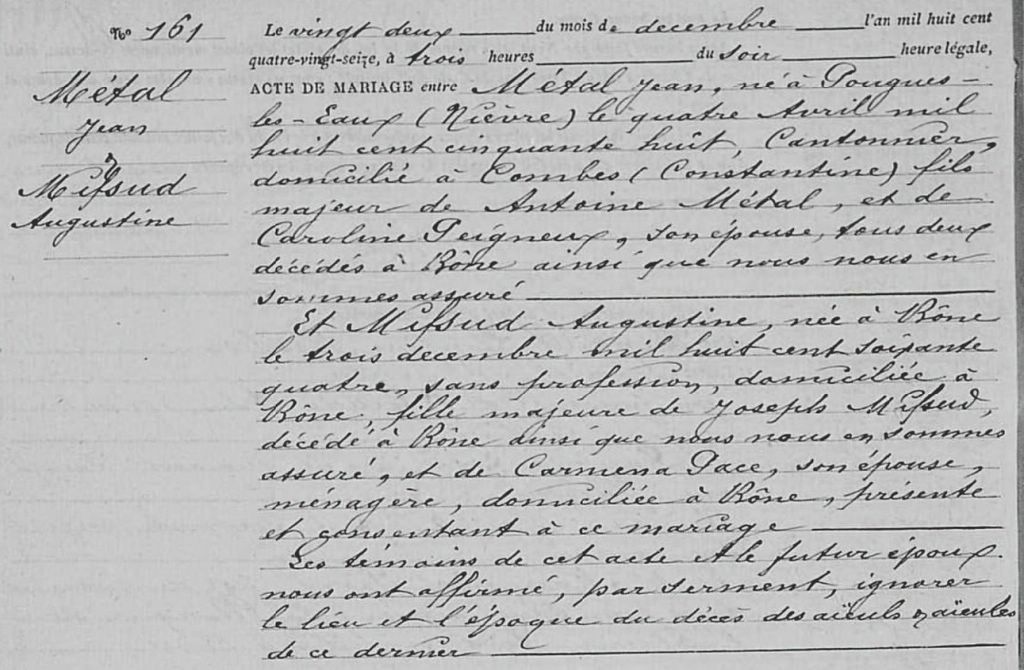 No 161
Métal
Jean
&
Mifsud
Augustine
Le vingt deux du mois de decembre l'an mil huit cent
quatre-vingt-seize, à trois heures du soir heure légale,
ACTE DE MARIAGE entre Métal Jean, né à Pougues-
les-Eaux (Nièvre) le quatre Avril mil
huit cent cinquante huit, Cantonnier,
domicilié à Combes (Constantine) fils
majeur de Antoine Métal, et de
Caroline Peigneux, son épouse, tous deux
décédés à Bône ainsi que nous nous en
sommes assuré
Et Mifsud Augustine, née à Bône
le trois decembre mil huit cent soixante
quatre, sans profession, domiciliée à
Bône, fille majeure de Joseph Mifsud,
décédé à Bône ainsi que nous nous en sommes
assuré, et de Carmena Pace, son épouse,
ménagère, domiciliée à Bône, présente
et consentant à ce mariage
Les témoins de cet acte et le futur époux
nous ont affirmé, par serment, ignorer
le lieu et l'époque du décès des aïeuls & aïeules
de ce dernier